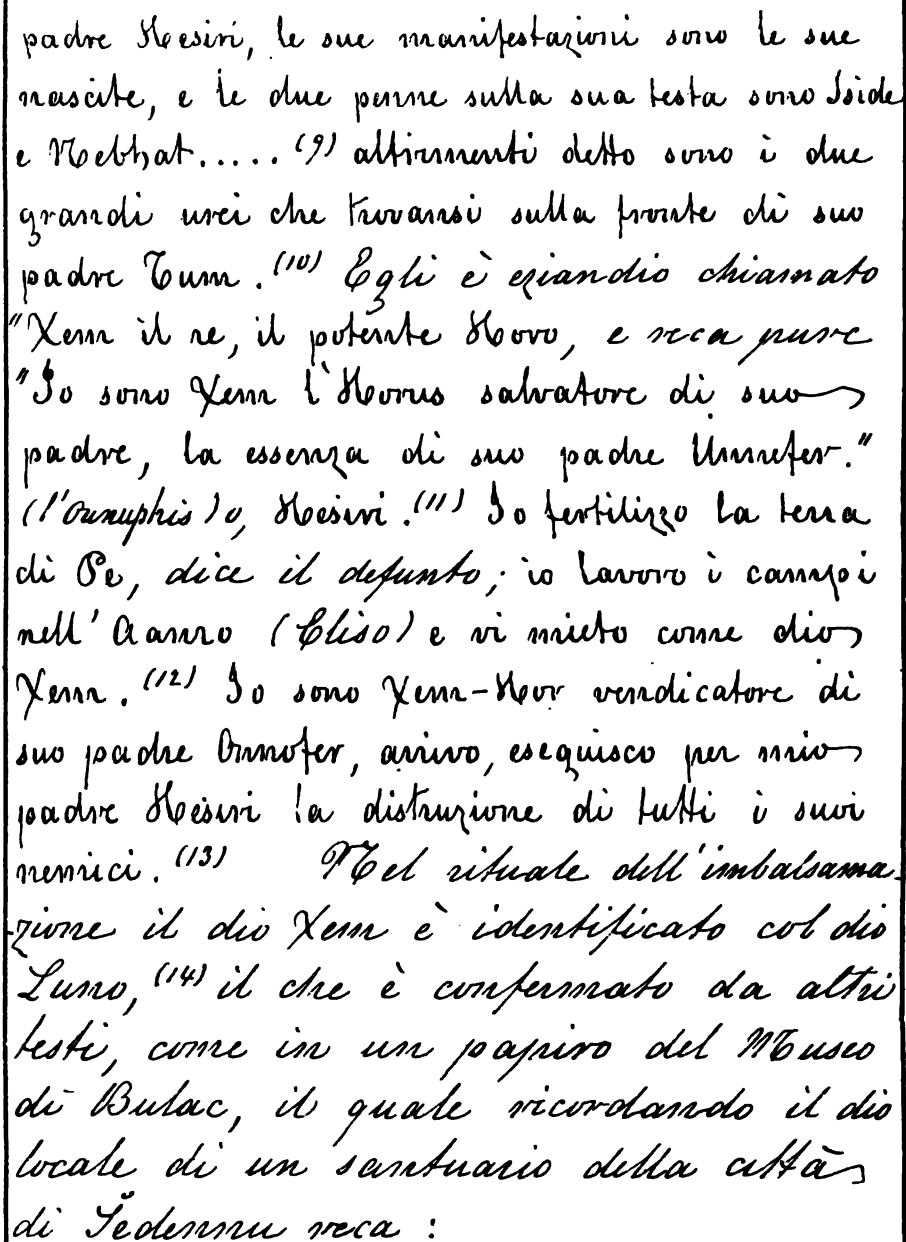 padre Hesiri, le sue manifestazioni sono le sue
nascite, e le due penne sulla sua testa sono Iside
e Nebhat..... (9) altrimenti detto sono i due
grandi urei che trovansi sulla fronte di suo
padre Tum. (10) Egli è eziandio chiamato
"Xem il re, il potente Horo, e reca pure
"Io sono Xem l'Horus salvatore di suo
padre, la essenza di suo padre Unnefer."
(l'Ounuphis) o, Hesiri. (11) Io fertilizzo la terra
di Pe, dice il defunto; io lavoro i campi
nell' Aanro (Eliso) e vi mieto come dio
Xem. (12) Io sono Xem-Hor vendicatore di
suo padre Onnofer, arrivo, eseguisco per mio
padre Hesiri la distruzione di tutti i suoi
nemici. (13) Nel rituale dell'imbalsama-
-zione il dio Xem è identificato col dio
Luno, (14) il che è confermato da altri
testi, come in un papiro del Museo
di Bulac, il quale ricordando il dio
locale di un santuario della città
di Šedennu reca :